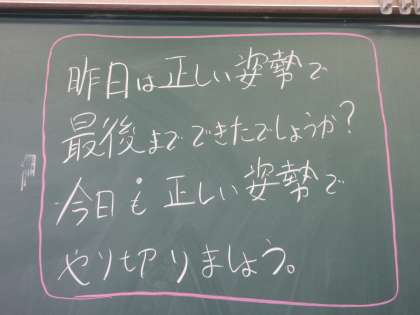 昨日は正しい姿勢で
最後までできたでしょうか?
今日も正しい姿勢で
やり切りましょう。